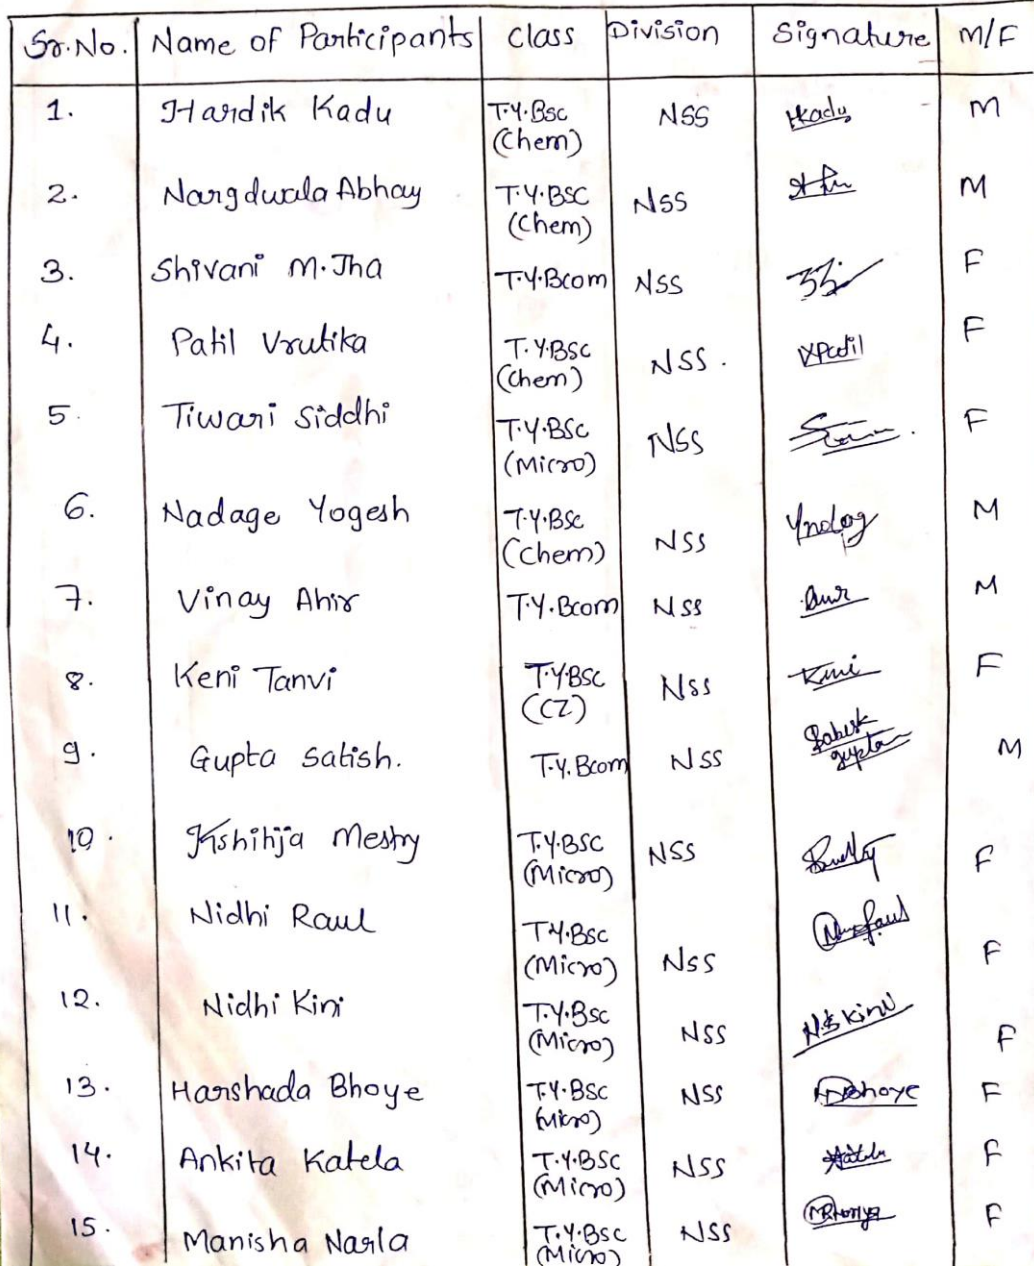 Sr.No. Name of Participants class Division Signature M/F
1. Hardik Kadu T.Y.Bsc (Chem) NSS HKadu M
2. Nargdwala Abhay T.Y.BSC (Chem) NSS M
3. Shivani M.Jha T.Y.Bcom NSS F
4. Patil Vrutika T.Y.BSC (Chem) NSS. VPatil F
5. Tiwari Siddhi T.Y.BSC (Micro) NSS F
6. Nadage Yogesh T.Y.BSC (Chem) NSS M
7. Vinay Ahir T.Y.Bcom NSS M
8. Keni Tanvi T.Y.BSC (CZ) NSS Keni F
9. Gupta Satish. T.Y.Bcom NSS Satish gupta M
10. Kshitija Mestry T.Y.BSC (Micro) NSS F
11. Nidhi Raul T.Y.BSC (Micro) NSS F
12. Nidhi Kini T.Y.BSC (Micro) NSS N.S Kini F
13. Harshada Bhoye T.Y.BSC (Micro) NSS HDBhoye F
14. Ankita Katela T.Y.BSC (Micro) NSS F
15. Manisha Narla T.Y.BSC (Micro) NSS F